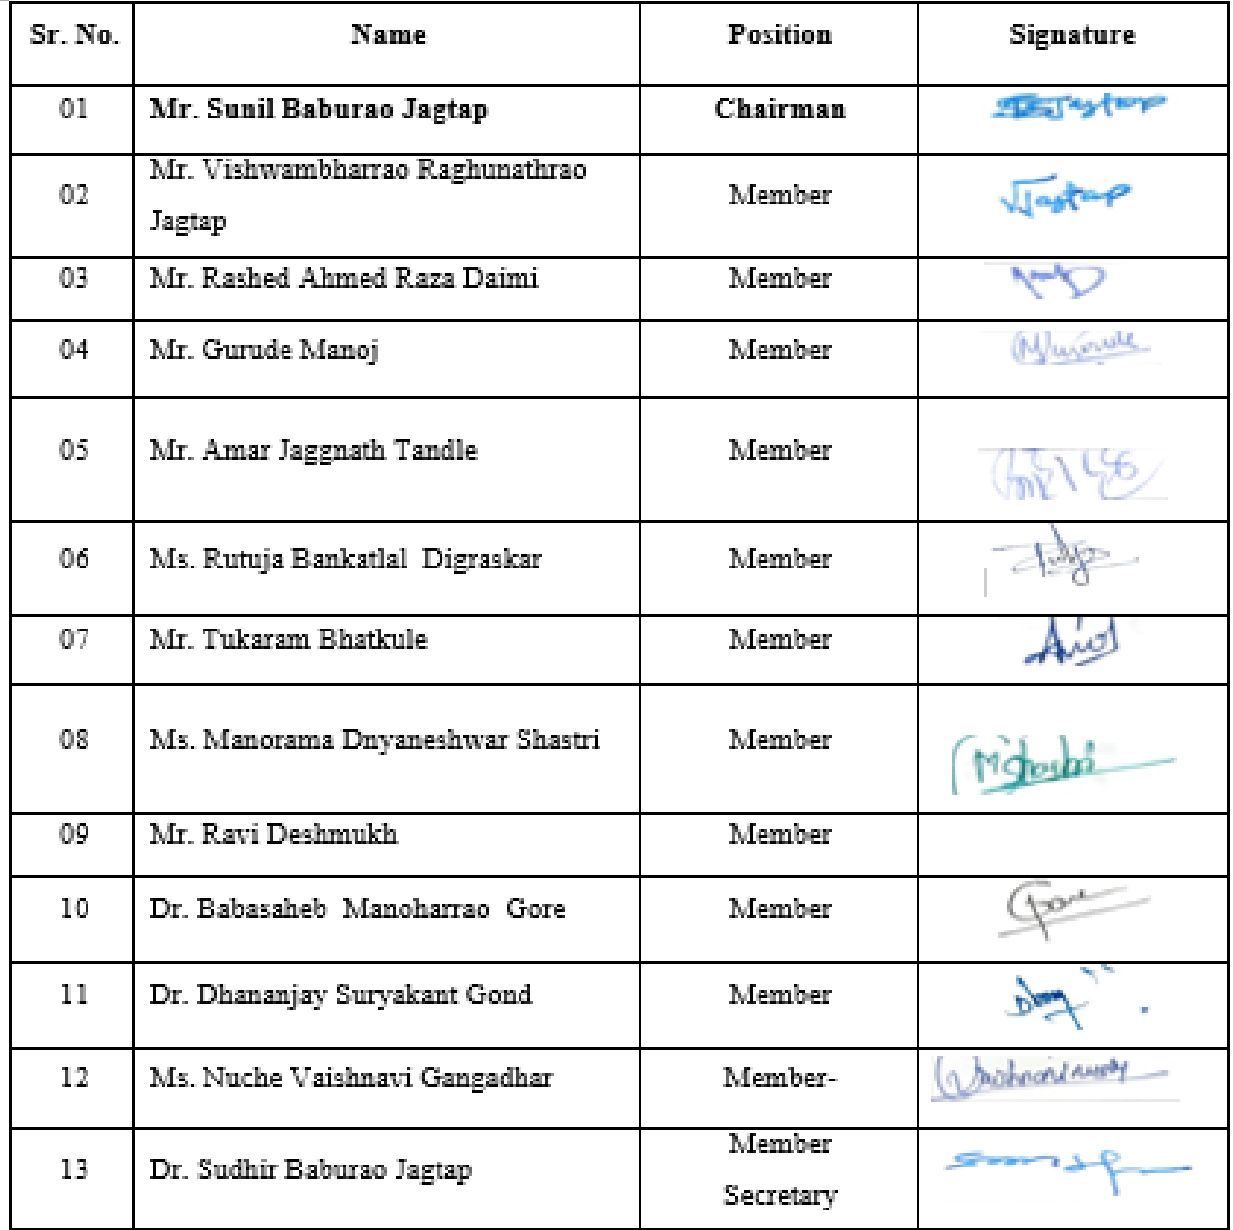 Sr. No. Name Position Signature
01 Mr. Sunil Baburao Jagtap Chairman Jagtap
Mr. Vishwambharrao Raghunathrao
02 Member VJagtap
Jagtap
03 Mr. Rashed Ahmed Raza Daimi Member
04 Mr. Gurude Manoj Member
05 Mr. Amar Jaggnath Tandle Member
06 Ms. Rutuja Bankatlal Digraskar Member
07 Mr. Tukaram Bhatkule Member
08 Ms. Manorama Dnyaneshwar Shastri Member
09 Mr. Ravi Deshmukh Member
10 Dr. Babasaheb Manoharrao Gore Member
11 Dr. Dhananjay Suryakant Gond Member
12 Ms. Nuche Vaishnavi Gangadhar Member-
Member
13 Dr. Sudhir Baburao Jagtap
Secretary